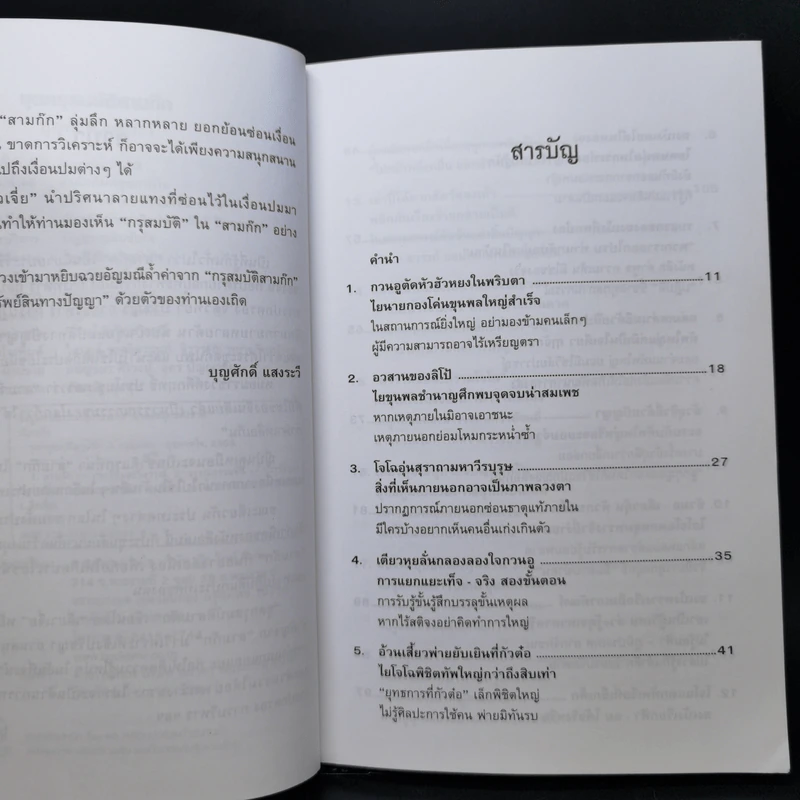 “สามก๊ก” ลุ่มลึก หลากหลาย ยอกย้อนซ่อนเงื่อน
ขาดการวิเคราะห์ ก็อาจจะได้เพียงความสนุกสนาน
ไปถึงเงื่อนปมต่างๆ ได้
นำปริศนาลายแทงที่ซ่อนไว้ในเงื่อนปมมา
ทำให้ท่านมองเห็น “กรุสมบัติ” ใน “สามก๊ก” อย่าง
เข้ามาหยิบฉวยอัญมณีล้ำค่าจาก “กรุสมบัติสามก๊ก”
ทรัพย์สินทางปัญญา” ด้วยตัวของท่านเองเถิด
บุญศักดิ์ แสงระวี
สารบัญ
คำนำ
1. กวนอูตัดหัวฮัวหยงในพริบตา 11
ไยนายกองโค่นขุนพลใหญ่สำเร็จ
ในสถานการณ์ยิ่งใหญ่ อย่ามองข้ามคนเล็กๆ
ผู้มีความสามารถอาจไร้เหรียญตรา
2. อวสานของลิโป้ 18
ไยขุนพลชำนาญศึกพบจุดจบน่าสมเพช
หากเหตุภายในมิอาจเอาชนะ
เหตุภายนอกย่อมโหมกระหน่ำซ้ำ
3. โจโฉอุ่นสุราถามหาวีรบุรุษ 27
สิ่งที่เห็นภายนอกอาจเป็นภาพลวงตา
ปรากฏการณ์ภายนอกซ่อนธาตุแท้ภายใน
มีใครบ้างอยากเห็นคนอื่นเก่งเกินตัว
4. เตียวหุยลั่นกลองลองใจกวนอู 35
การแยกแยะเท็จ - จริง สองขั้นตอน
การรับรู้ขั้นรู้สึกบรรลุขั้นเหตุผล
หากไร้สติจงอย่าคิดทำการใหญ่
5. อ้วนเสี้ยวพ่ายยับเยินที่กัวต๋อ 41
ไยโจโฉพิชิตทัพใหญ่กว่าถึงสิบเท่า
“ยุทธการที่กัวต๋อ” เล็กพิชิตใหญ่
ไม่รู้ศิลปะการใช้คน พ่ายมิทันรบ